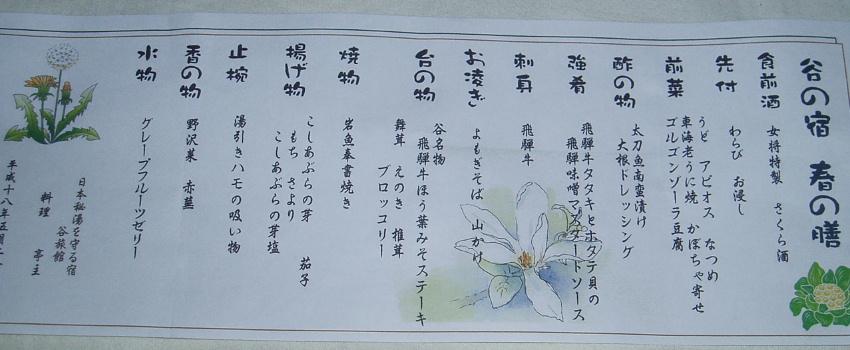 谷の宿 春の膳
食前酒 女将特製 さくら酒
先付 わらび お浸し
前菜 うど アピオス なつめ
東海老うに焼 かぼちゃ寄せ
ゴルゴンゾーラ豆腐
酢の物 太刀魚南蛮漬け
大根ドレッシング
強肴 飛騨牛タタキとホタテ貝の
飛騨味噌マスタードソース
刺身 飛騨牛
お凌ぎ よもぎそば 山かけ
台の物 谷名物
飛騨牛ほう葉みそステーキ
舞茸 えのき 椎茸
ブロッコリー
焼物 岩魚奉書焼き
揚げ物 こしあぶらの芽 茄子
もち さより
こしあぶらの芽塩
止椀 湯引きハモの吸い物
香の物 野沢菜 赤蕪
水物 グレープフルーツゼリー
日本秘湯を守る宿
谷旅館
料理 亭主
平成十八年五月